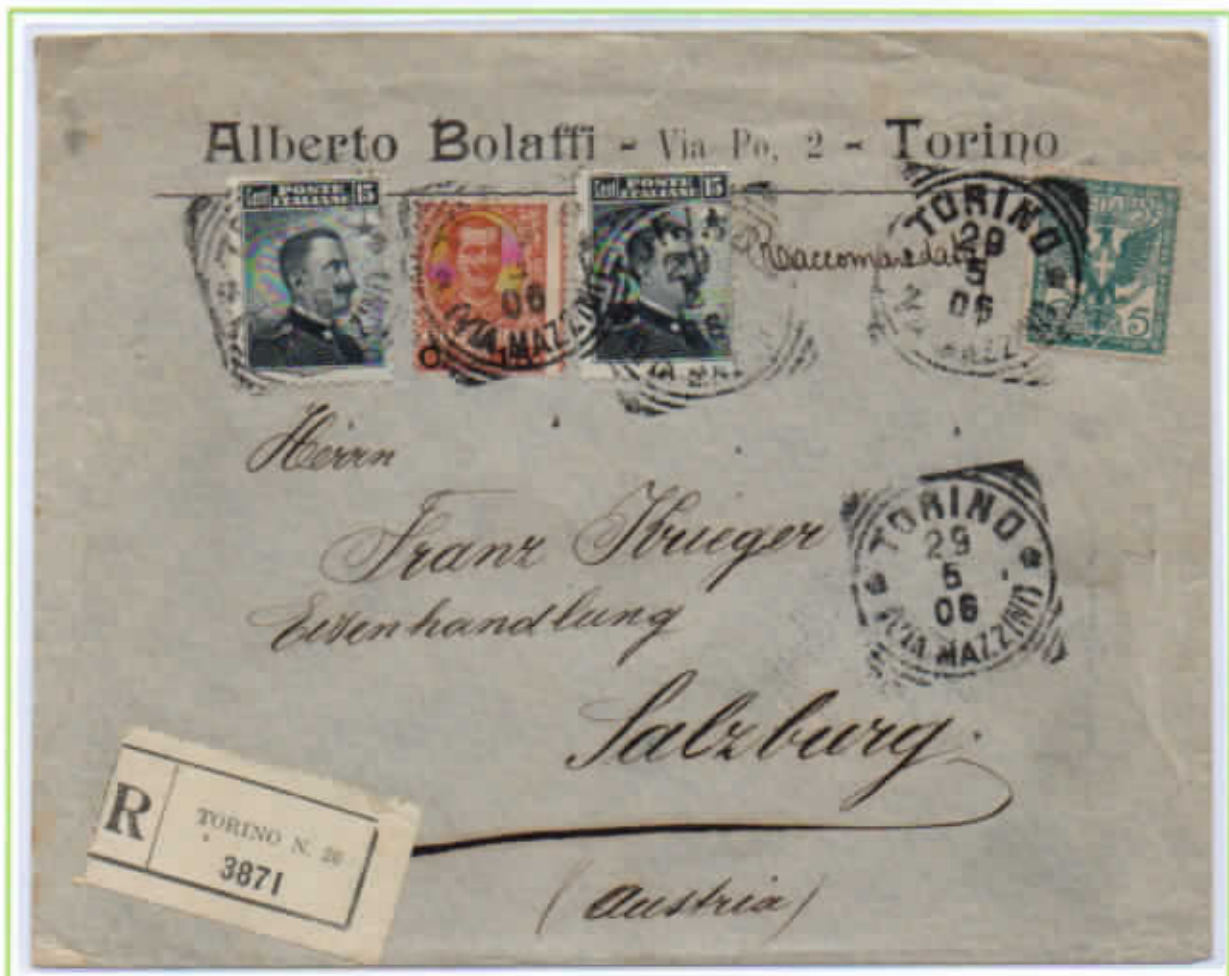 Alberto Bolaffi - Via Po, 2 - Torino
Cent POSTE ITALIANE 15
06
(VIA MAZZINI)
Cent POSTE ITALIANE 15
Raccomandata
TORINO
29
5
06
5
Herrn
Franz Krueger
Eisenhandlung
Salzburg.
(Austria)
TORINO
29
5
06
(VIA MAZZINI)
R
TORINO N. 20
3871